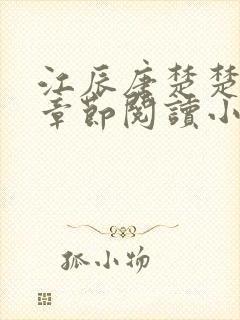 江辰唐楚楚
章節閱讀小
孤小物